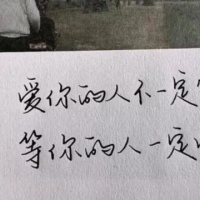 爱你的人不一定
等你的人一定